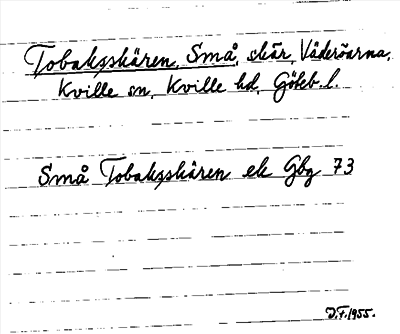 Tobaksskären, Små, skär, Väderöarna,
Kville sn, Kville hd, Göteb. l.
Små Tobaksskären ek Gbg 73
D.F. 1955.